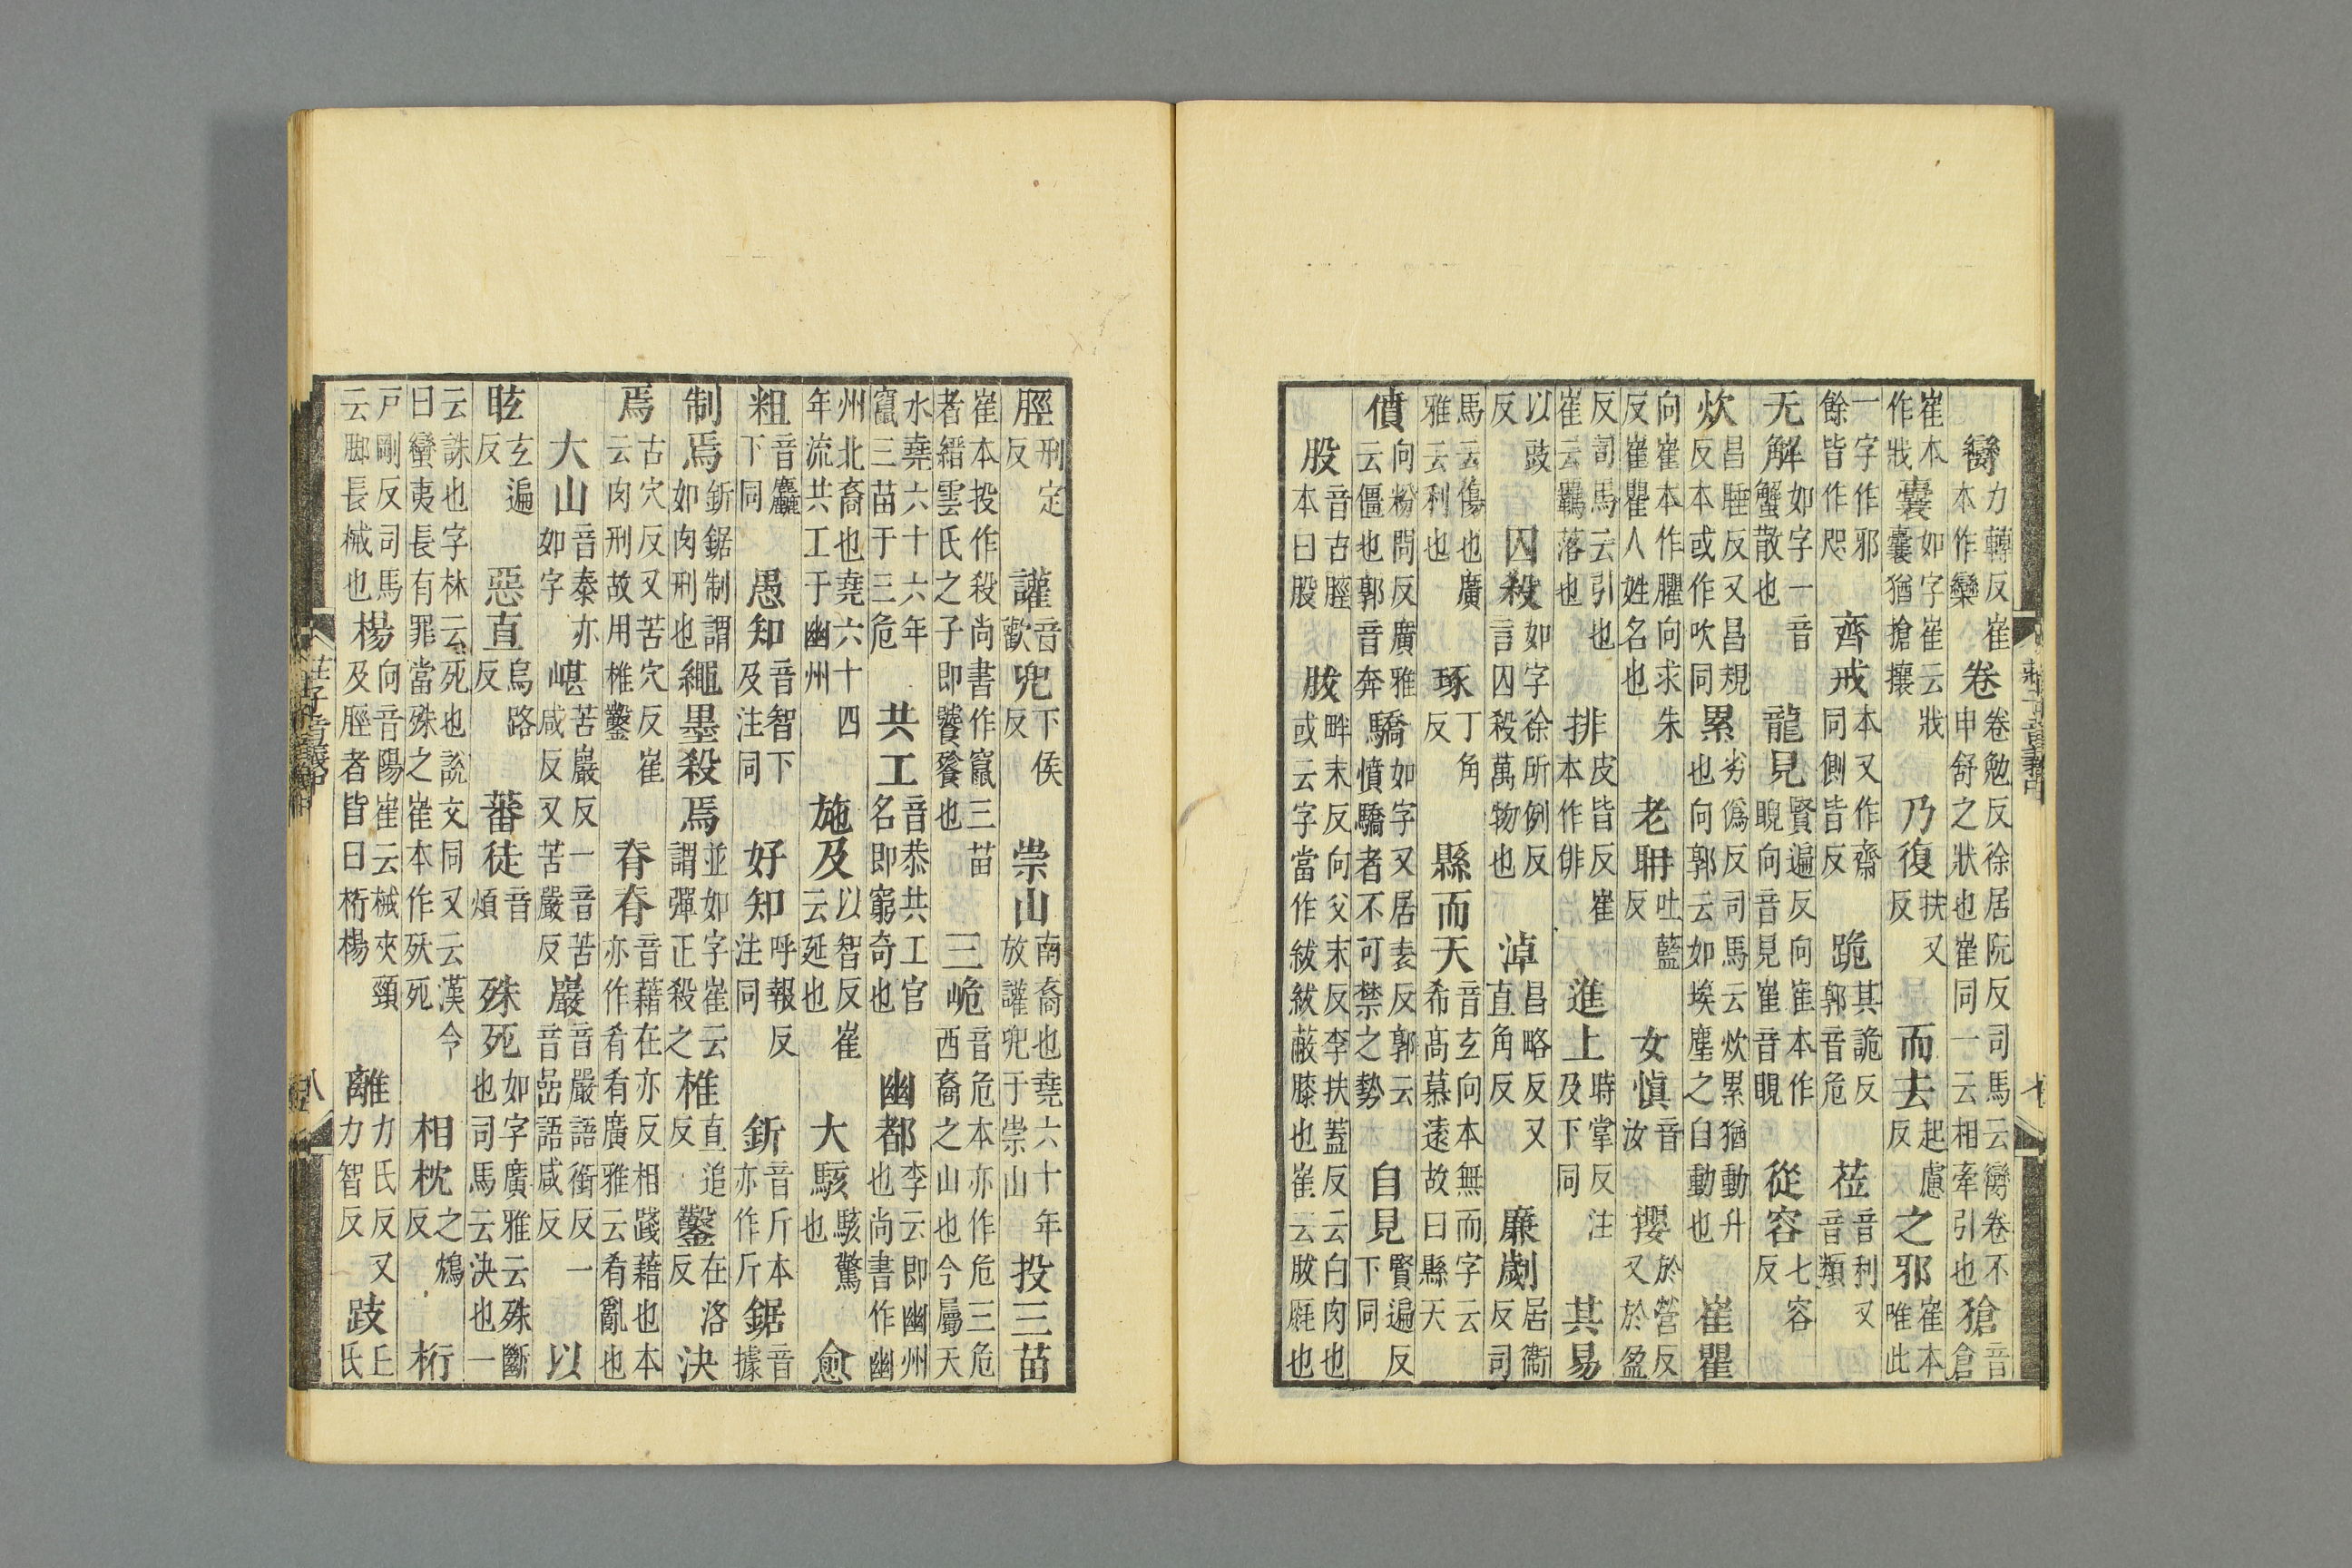 臠力轉反崔本作欒卷卷勉反徐居阮反司馬云臠卷不申舒之狀也崔同一云相牽引也獊音倉
崔本作戕囊如字崔云戕囊猶搶攘乃復扶又反而去起慮反之邪崔本唯此
一字作邪餘皆作咫齊戒本又作齋同側皆反跪其詭反郭音危莅音利又音類
无解如字一音蟹散也龍見賢遍反向崔本作睍向音見崔音睍從容七容反
炊昌睡反又昌規反本或作吹同累劣僞反司馬云炊累猶動升也向郭云如埃塵之自動也崔瞿
向崔本作臞向求朱反崔瞿人姓名也老聃吐藍反女慎音汝攖於營反又於盈
反司馬云引也崔云羈落也排皮皆反崔本作俳進上時掌反注及下同其易
以豉反囚殺如字徐所例反言囚殺萬物也淖昌略反又直角反廉劌居衞反司
馬云傷也廣雅云利也琢丁角反縣而天音玄向本無而字云希高慕遠故曰縣天
僨向粉問反廣雅云僵也郭音奔驕如字又居表反郭云僨驕者不可禁之勢自見賢遍反下同
股音古脛本曰股胈畔末反向父末反李扶蓋反云白肉也或云字當作紱紱蔽膝也崔云胈也
莊子音義中 七
脛刑定反讙音歡兜下侯反崇山南裔也堯六十年放讙兜于崇山投三苗
崔本投作殺尚書作竄三苗者縉雲氏之子即饕餮也三峗音危本亦作危三危西裔之山也今屬天
水堯六十六年竄三苗于三危共工音恭共工官名即窮奇也幽都李云即幽州也尚書作幽
州北裔也堯六十四年流共工于幽州施及以智反崔云延也大駭駭驚也愈
粗音麤下同愚知音智下及注同好知呼報反注同釿音斤本亦作斤鋸音據
制焉釿鋸制謂如肉刑也繩墨殺焉並如字崔云謂彈正殺之椎直追反鑿在洛反決
焉古穴反又苦穴反崔云肉刑故用椎鑿脊脊音藉在亦反相踐藉也本亦作肴肴廣雅云肴亂也
大山音泰亦如字嵁苦巖反一音苦咸反又苦嚴反巖音嚴語銜反一音嵒語咸反以
眩玄遍反惡直烏路反蕃徒音煩殊死如字廣雅云殊斷也司馬云決也一
云誅也字林云死也說文同又云漢令曰蠻夷長有罪當殊之崔本作殀死相枕之鴆反桁
戸剛反司馬云脚長械也楊向音陽崔云械夾頸及脛者皆曰桁楊離力氏反又力智反跂丘氏
莊子音義中 八